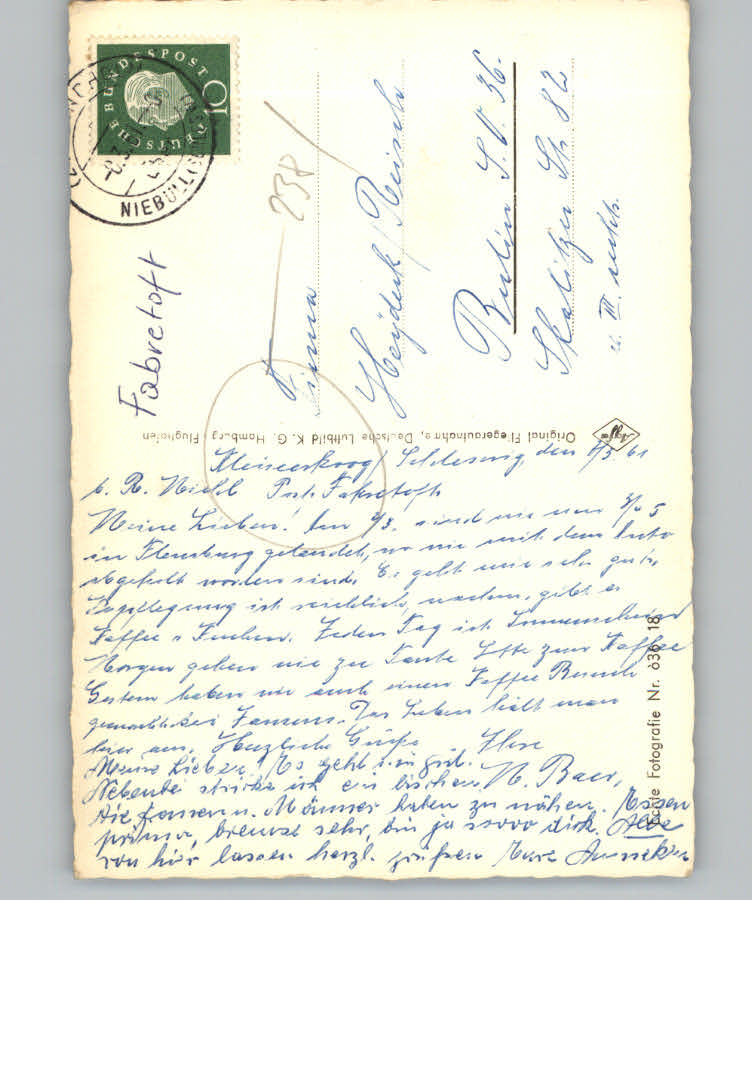 DEUTSCHE BUNDESPOST
10
NIEBÜLL
Fahretoft
238
Firma
Heydeck / Reisch
Berlin S.O. 36.
Skalitzer Str 82
v. III. rechts
Original Fliegeraufnahme, Deutsche Luftbild K. G. Hamburg Flughafen
Agfa
Echte Fotografie Nr. 636 18
Kleiseerkoog / Schleswig, den 61
b. R. Post Fahretoft
Meine Lieben! Am sind wir um 5
in Flensburg gelandet, wo wir mit dem Auto
abgeholt worden sind. Es geht mir sehr gut,
Verpflegung ist reichlich, nachm. gibt es
Kaffee u Kuchen. Jeden Tag ist Sonnenschein
Morgen gehen wir zu Tante zum Kaffee
Gestern haben wir auch einen Kaffee Besuch
gemacht bei Jannens. Das Leben hält man
hier aus. Herzliche Grüße Ilse
Meine Lieben! Es geht uns gut.
Nebenbei stricke ich ein bischen N. Baer,
die Jannens. Männer haben zu nähen. Essen
prima, bremse sehr, bin ja soooo dick. Alle
von hier lassen herzl. grüßen Eure